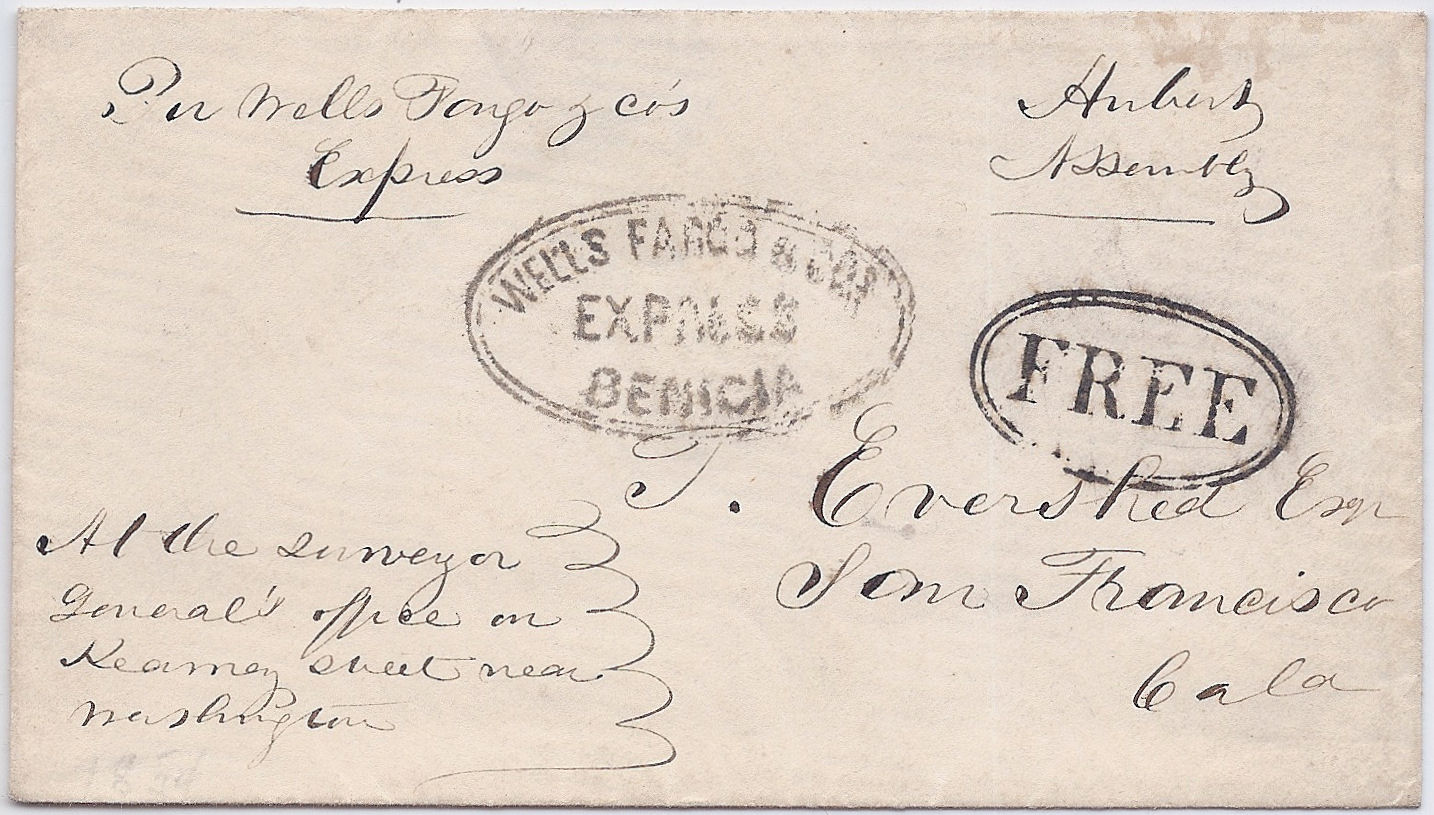 Per Wells Fargo & co's
Express
Hubert
Assembly
WELLS FARGO & COS
EXPRESS
BENICIA
FREE
T. Evershed Esqr
San Francisco
Cala
At the surveyor
General's office on
Kearney street near
Washington